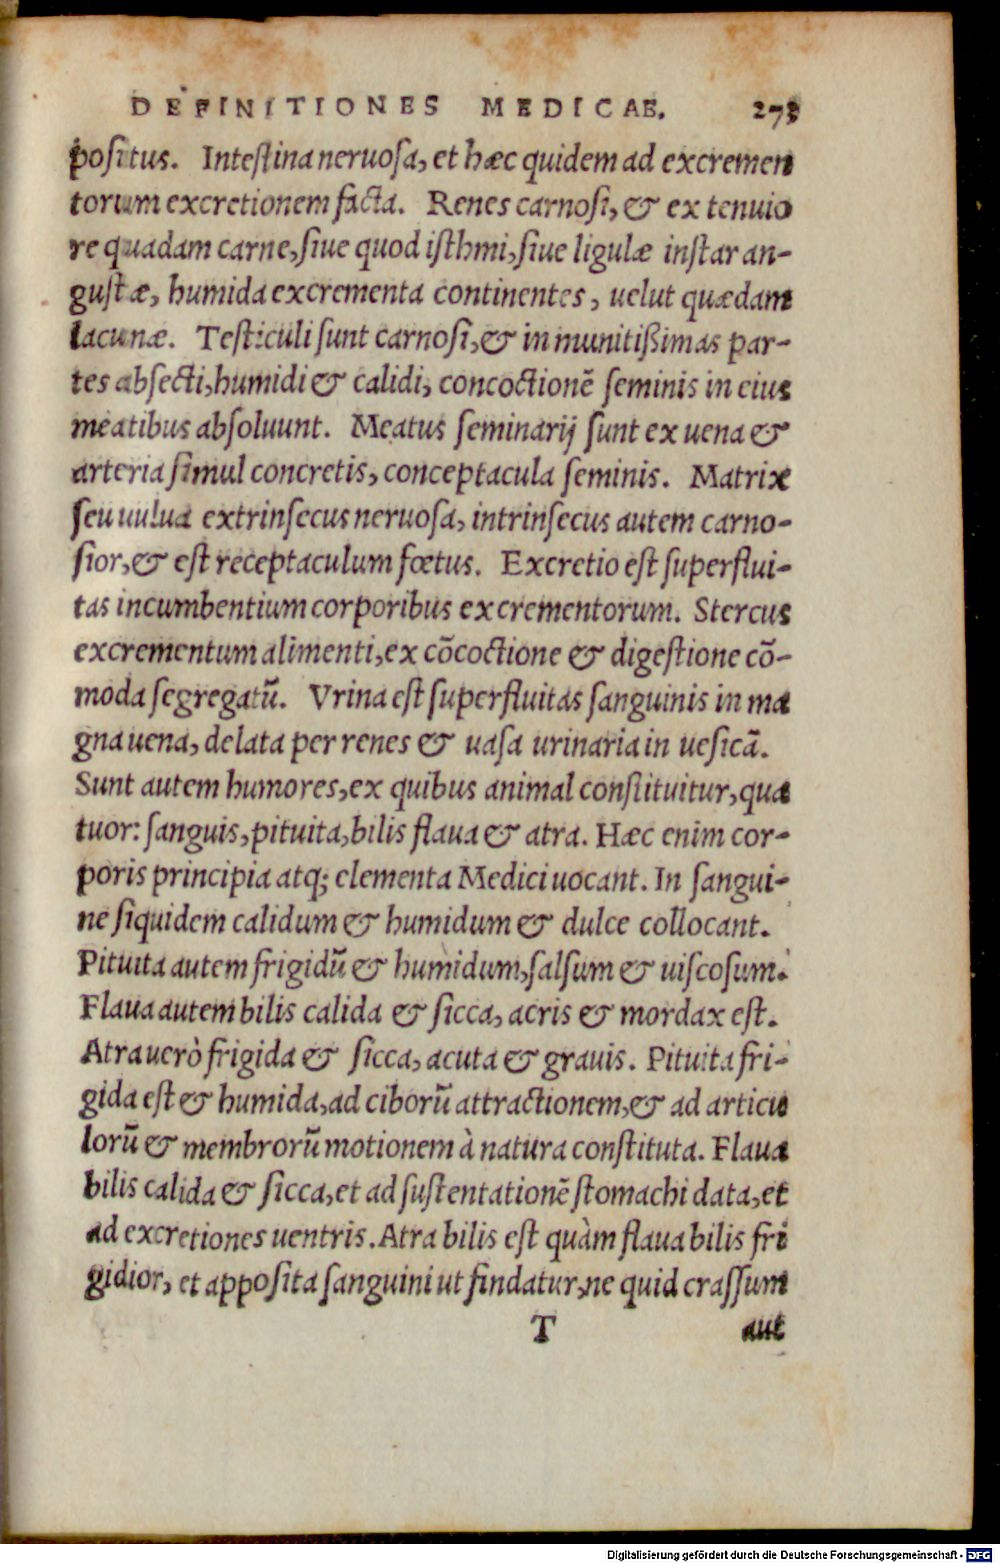 DEFINITIONES MEDICAE. 273
positus. Intestina neruosa, et hæc quidem ad excremen
torum excretionem facta. Renes carnosi, & ex tenuio
re quadam carne, siue quod isthmi, siue ligulæ instar an-
gustæ, humida excrementa continentes, uelut quædam
lacunæ. Testiculi sunt carnosi, & in munitißimas par-
tes absecti, humidi & calidi, concoctionē seminis in eius
meatibus absoluunt. Meatus seminarij sunt ex uena &
arteria simul concretis, conceptacula seminis. Matrix
seu uulua extrinsecus neruosa, intrinsecus autem carno-
sior, & est receptaculum fœtus. Excretio est superflui-
tas incumbentium corporibus excrementorum. Stercus
excrementum alimenti, ex cōcoctione & digestione cō-
moda segregatū. Vrina est superfluitas sanguinis in ma
gna uena, delata per renes & uasa urinaria in uesicā.
Sunt autem humores, ex quibus animal constituitur, qua
tuor: sanguis, pituita, bilis flaua & atra. Hæc enim cor-
poris principia atq; elementa Medici uocant. In sangui-
ne siquidem calidum & humidum & dulce collocant.
Pituita autem frigidū & humidum, salsum & uiscosum.
Flaua autem bilis calida & sicca, acris & mordax est.
Atra uerò frigida & sicca, acuta & grauis. Pituita fri-
gida est & humida, ad ciborū attractionem, & ad articu
lorū & membrorū motionem à natura constituta. Flaua
bilis calida & sicca, et ad sustentationē stomachi data, et
ad excretiones uentris. Atra bilis est quàm flaua bilis fri
gidior, et apposita sanguini ut findatur, ne quid crassum
T aut
Digitalisierung gefördert durch die Deutsche Forschungsgemeinschaft - DFG